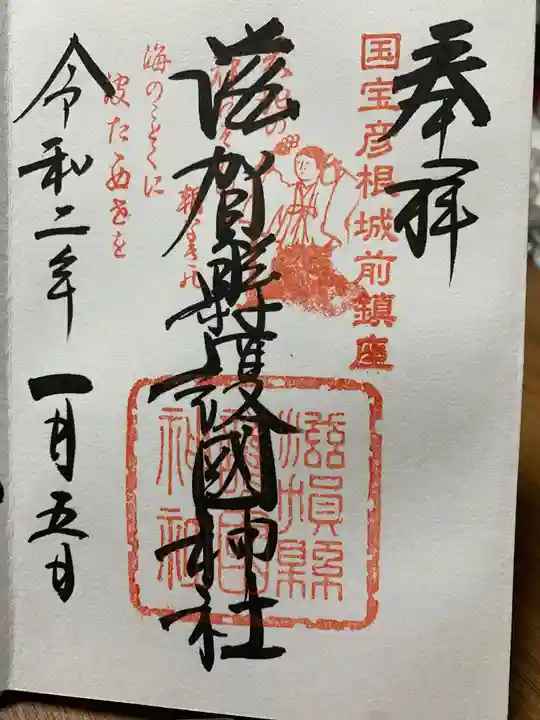 奉拝
国宝彦根城前鎮座
滋賀縣護國神社
滋賀縣護國神社
海のことくに
令和二年 一月五日